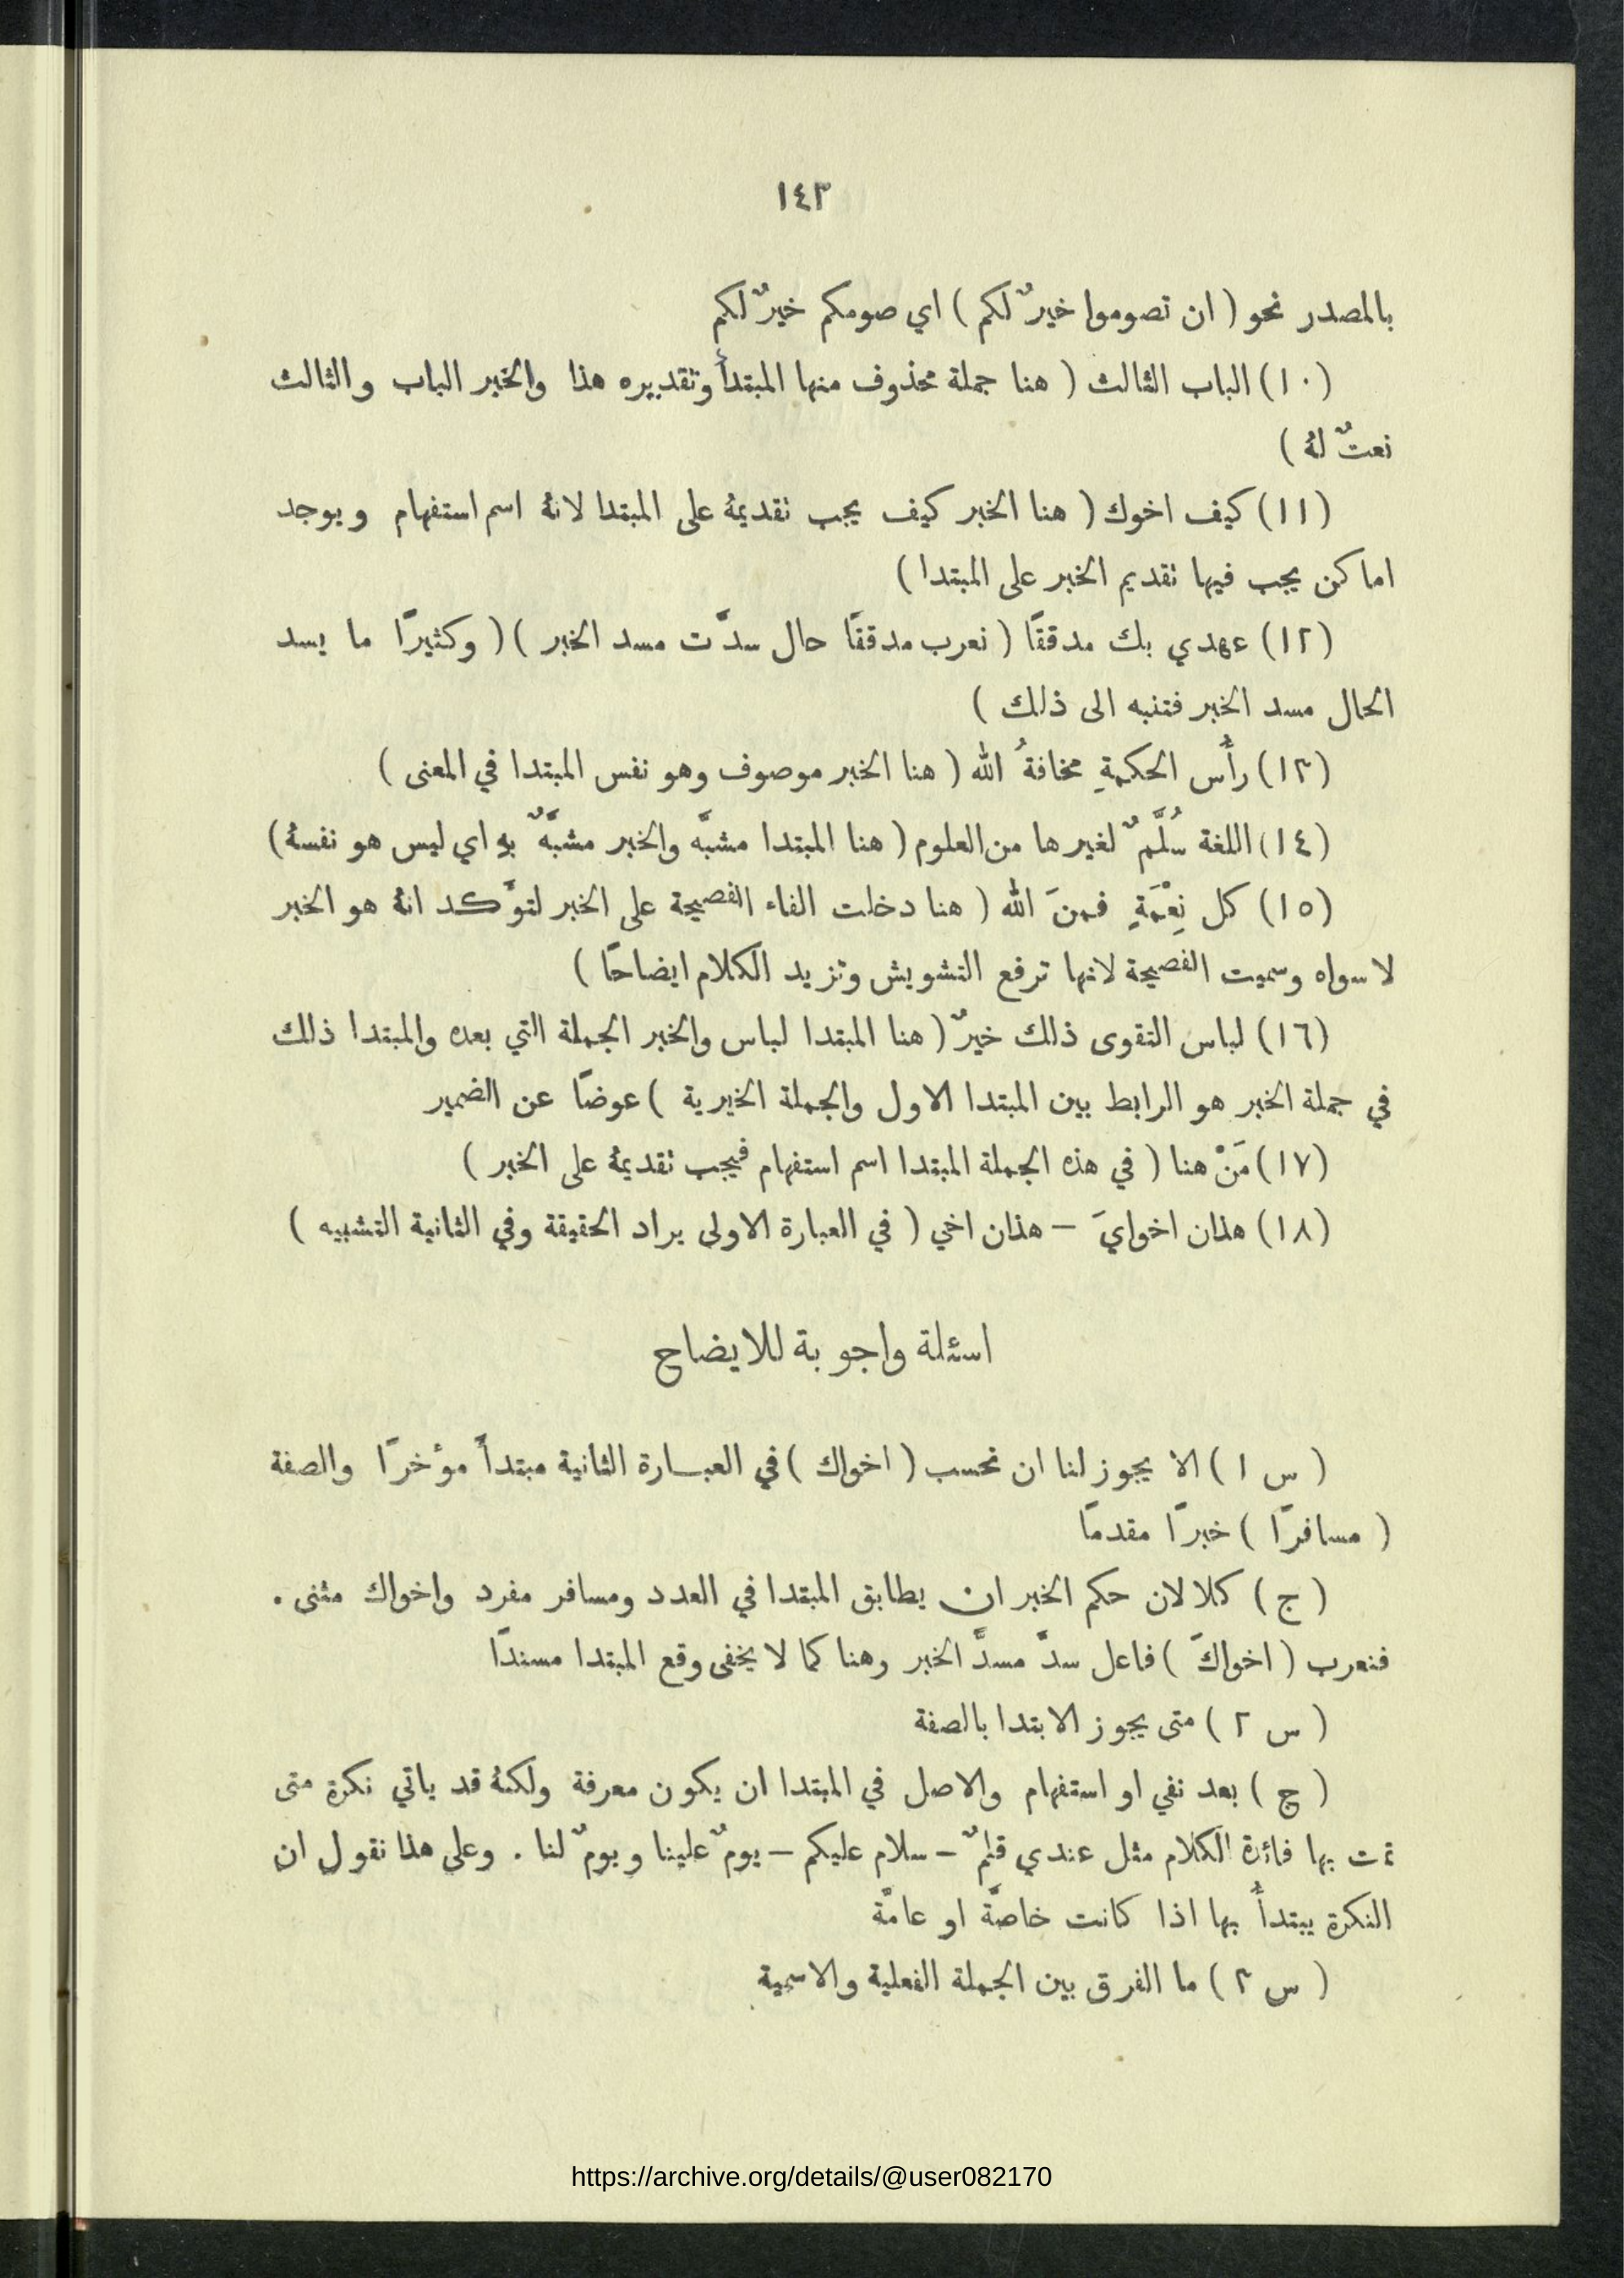 ١٤٣
بالمصدر نحو ( ان تصوموا خيرٌ لكم ) اي صومكم خيرٌ لكم
(١٠) الباب الثالث ( هنا جملة محذوف منها المبتدأُ وتقديره هذا والخبر الباب والثالث
نعتٌ لهُ )
(١١) كيف اخوك ( هنا الخبر كيف يجب تقديمهُ على المبتدا لانهُ اسم استفهام ويوجد
اماكن يجب فيها تقديم الخبر على المبتدا )
(١٢) عهدي بك مدققًا ( نعرب مدققًا حال سدَّت مسد الخبر ) ( وكثيرًا ما يسد
الحال مسد الخبر فتنبه الى ذلك )
(١٣) رأْس الحكمةِ مخافةُ الله ( هنا الخبر موصوف وهو نفس المبتدا في المعنى )
(١٤) اللغة سُلَّمٌ لغيرها من العلوم ( هنا المبتدا مشبَّه والخبر مشبَّهٌ بهِ اي ليس هو نفسهُ )
(١٥) كل نِعْمَةٍ فمنَ الله ( هنا دخلت الفاء الفصيحة على الخبر لتوَّكد انهُ هو الخبر
لا سواه وسميت الفصيحة لانها ترفع التشويش وتزيد الكلام ايضاحًا )
(١٦) لباس التقوى ذلك خيرٌ ( هنا المبتدا لباس والخبر الجملة التي بعده والمبتدا ذلك
في جملة الخبر هو الرابط بين المبتدا الاول والجملة الخبرية ) عوضًا عن الضمير
(١٧) مَنْ هنا ( في هذه الجملة المبتدا اسم استفهام فيجب تقديمهُ على الخبر )
(١٨) هذان اخوايَ – هذان اخي ( في العبارة الاولى يراد الحقيقة وفي الثانية التشبيه )
اسئلة واجوبة للايضاح
( س ١ ) الا يجوز لنا ان نحسب ( اخواك ) في العبارة الثانية مبتدأً مؤخرًا والصفة
( مسافرًا ) خبرًا مقدمًا
( ج ) كلا لان حكم الخبر ان يطابق المبتدا في العدد ومسافر مفرد واخواك مثنى .
فنعرب ( اخواكَ ) فاعل سدَّ مسدَّ الخبر وهنا كما لا يخفى وقع المبتدا مسندًا
( س ٢ ) متى يجوز الابتدا بالصفة
( ج ) بعد نفي او استفهام والاصل في المبتدا ان يكون معرفة ولكنهُ قد ياتي نكرة متى
تمت بها فائدة الكلام مثل عندي قلمٌ – سلام عليكم – يومٌ علينا ويومٌ لنا . وعلى هذا نقول ان
النكرة يبتدأُ بها اذا كانت خاصَّة او عامَّة
( س ٣ ) ما الفرق بين الجملة الفعلية والاسمية
https://archive.org/details/@user082170